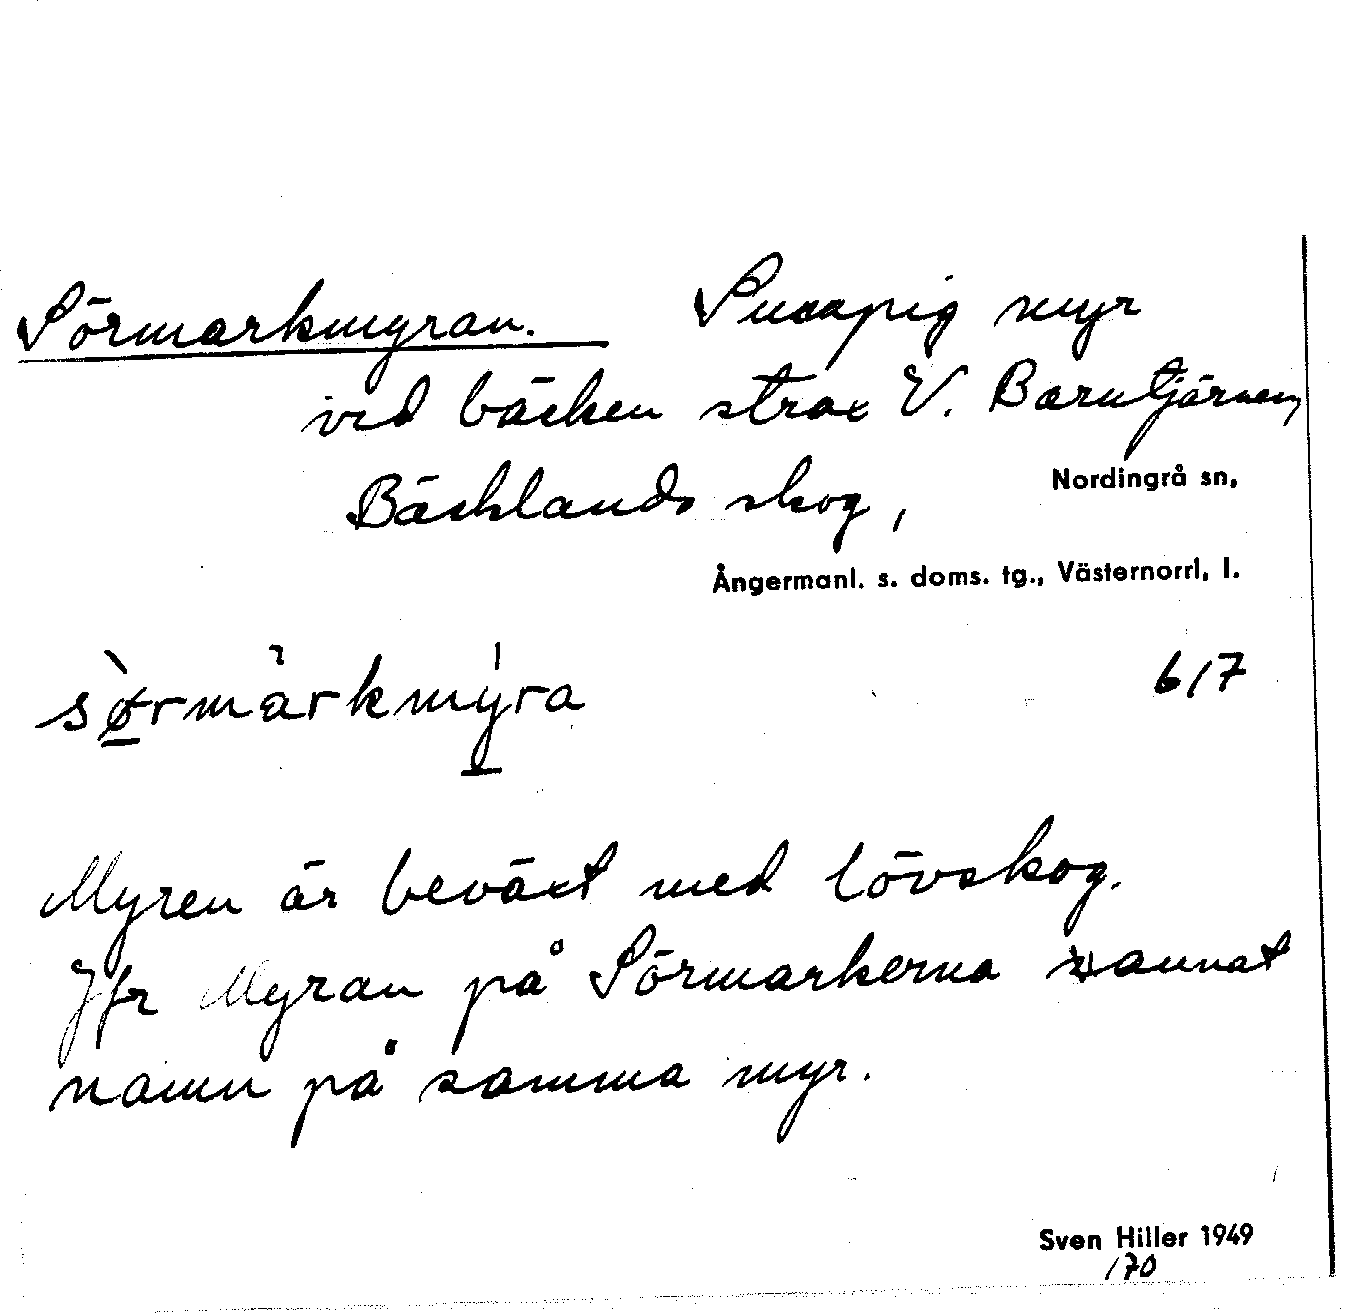 Sörmarkmyran. Sumpig myr
vid bäcken strax V. Barntjärnen,
Bäcklands skog, Nordingrå sn,
Ångermanl. s. doms. tg., Västernorrl. l.
sørmàrkmýra 617
Myren är beväxt med lövskog.
Jfr Myran på Sörmarkerna annat
namn på samma myr.
Sven Hiller 1949
170